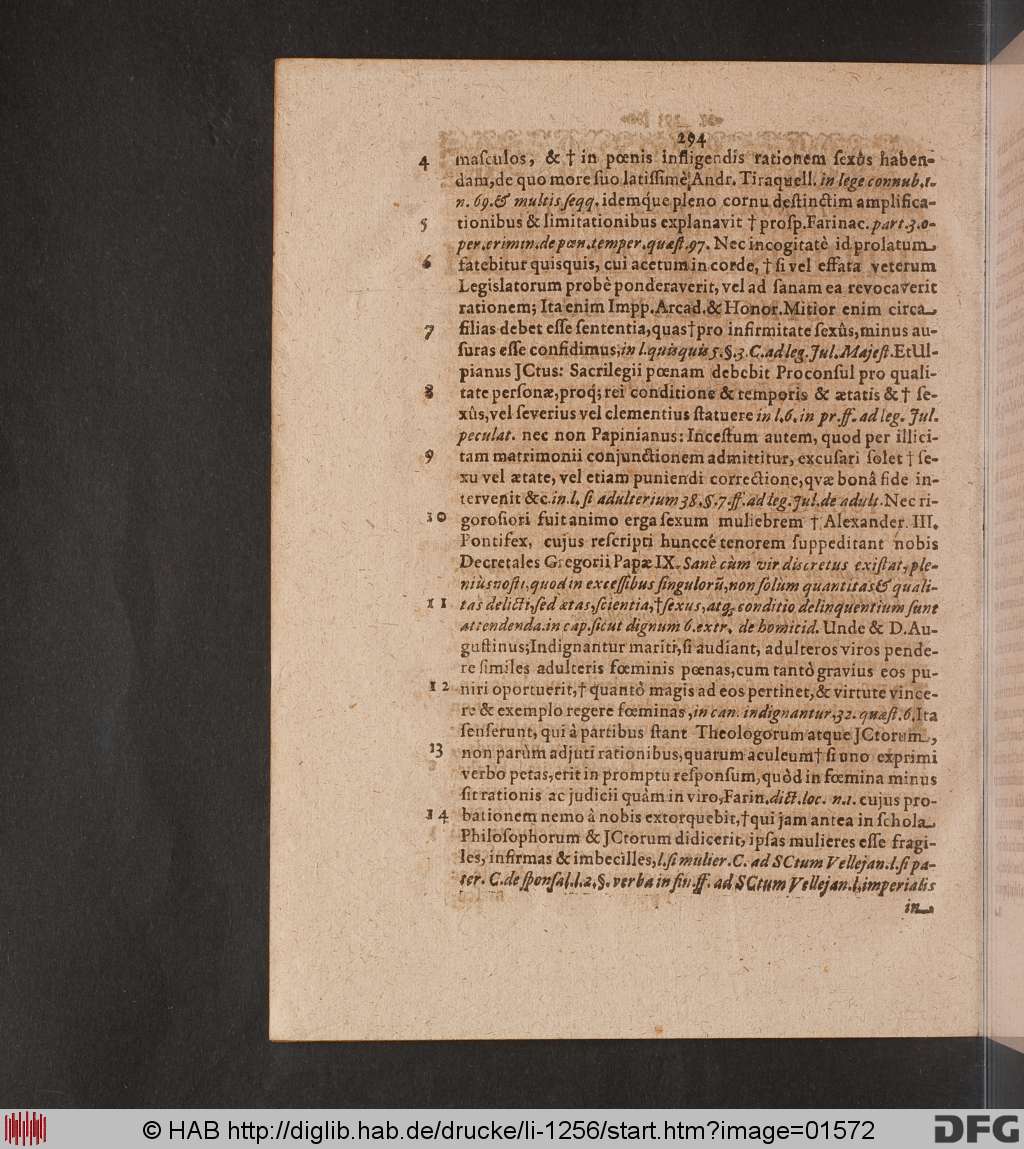 294
4 maſculos, & † in pœnis infligendis rationem ſexûs haben-
dam, de quo more ſuo latiſſimè Andr. Tiraquell. in lege connub. 1.
n. 69. & multis ſeqq. idemque pleno cornu deſtinctim amplifica-
5 tionibus & limitationibus explanavit † proſp. Farinac. part. 3. o-
per. crimin. de pœn. temper. quæſt. 97. Nec incogitatè id prolatum
6 fatebitur quisquis, cui acetum in corde, † ſi vel effata veterum
Legislatorum probè ponderaverit, vel ad ſanam ea revocaverit
rationem; Ita enim Impp. Arcad. & Honor. Mitior enim circa
7 filias debet eſſe ſententia, quas † pro infirmitate ſexûs, minus au-
ſuras eſſe confidimus, in l. quisquis 5. §. 3. C. ad leg. Jul. Majeſt. Et Ul-
pianus JCtus: Sacrilegii pœnam debebit Proconſul pro quali-
8 tate perſonæ, proq; rei conditione & temporis & ætatis & † ſe-
xûs, vel ſeverius vel clementius ſtatuere in l. 6. in pr. ff. ad leg. Jul.
peculat. nec non Papinianus: Inceſtum autem, quod per illici-
9 tam matrimonii conjunctionem admittitur, excuſari ſolet † ſe-
xu vel ætate, vel etiam puniendi correctione, qvæ bonâ fide in-
tervenit &c. in l. ſi adulterium 38. §. 7. ff. ad leg. Jul. de adult. Nec ri-
10 goroſiori fuit animo erga ſexum muliebrem † Alexander. III.
Pontifex, cujus reſcripti hunccé tenorem ſuppeditant nobis
Decretales Gregorii Papæ IX. Sanè cùm vir discretus exiſtat, ple-
niùs noſti, quod in exceſſibus ſingulorũ, non ſolùm quantitas & quali-
11 tas delicti, ſed ætas, ſcientia, † ſexus, atq; conditio delinquentium ſunt
attendenda. in cap. ſicut dignum 6. extr. de homicid. Unde & D. Au-
guſtinus; Indignantur mariti, ſi audiant, adulteros viros pende-
re ſimiles adulteris fœminis pœnas, cum tantò gravius eos pu-
12 niri oportuerit, † quantò magis ad eos pertinet, & virtute vince-
re & exemplo regere fœminas, in can. indignantur. 32. quæſt. 6. Ita
ſenſerunt, qui à partibus ſtant Theologorum atque JCtorum,
13 non parùm adjuti rationibus, quarum aculeum † ſi uno exprimi
verbo petas, erit in promptu reſponſum, quòd in fœmina minus
ſit rationis ac judicii quàm in viro, Farin. dict. loc. n. 1. cujus pro-
14 bationem nemo à nobis extorquebit, † qui jam antea in ſchola
Philoſophorum & JCtorum didicerit, ipſas mulieres eſſe fragi-
les, infirmas & imbecilles, l. ſi mulier. C. ad SCtum Vellejan. l. ſi pa-
ter. C. de ſponſal. l. 2. §. verba in fin. ff. ad SCtum Vellejan. l. imperialis
in
© HAB http://diglib.hab.de/drucke/li-1256/start.htm?image=01572
DFG